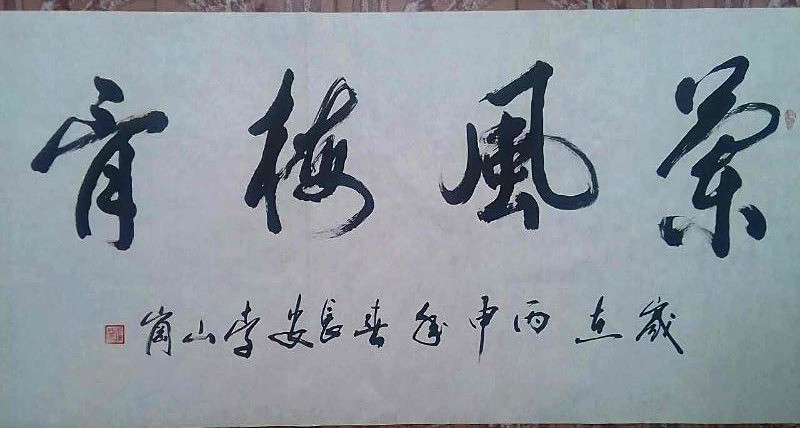 蘭風梅骨
歲在丙申年春長安李山崗